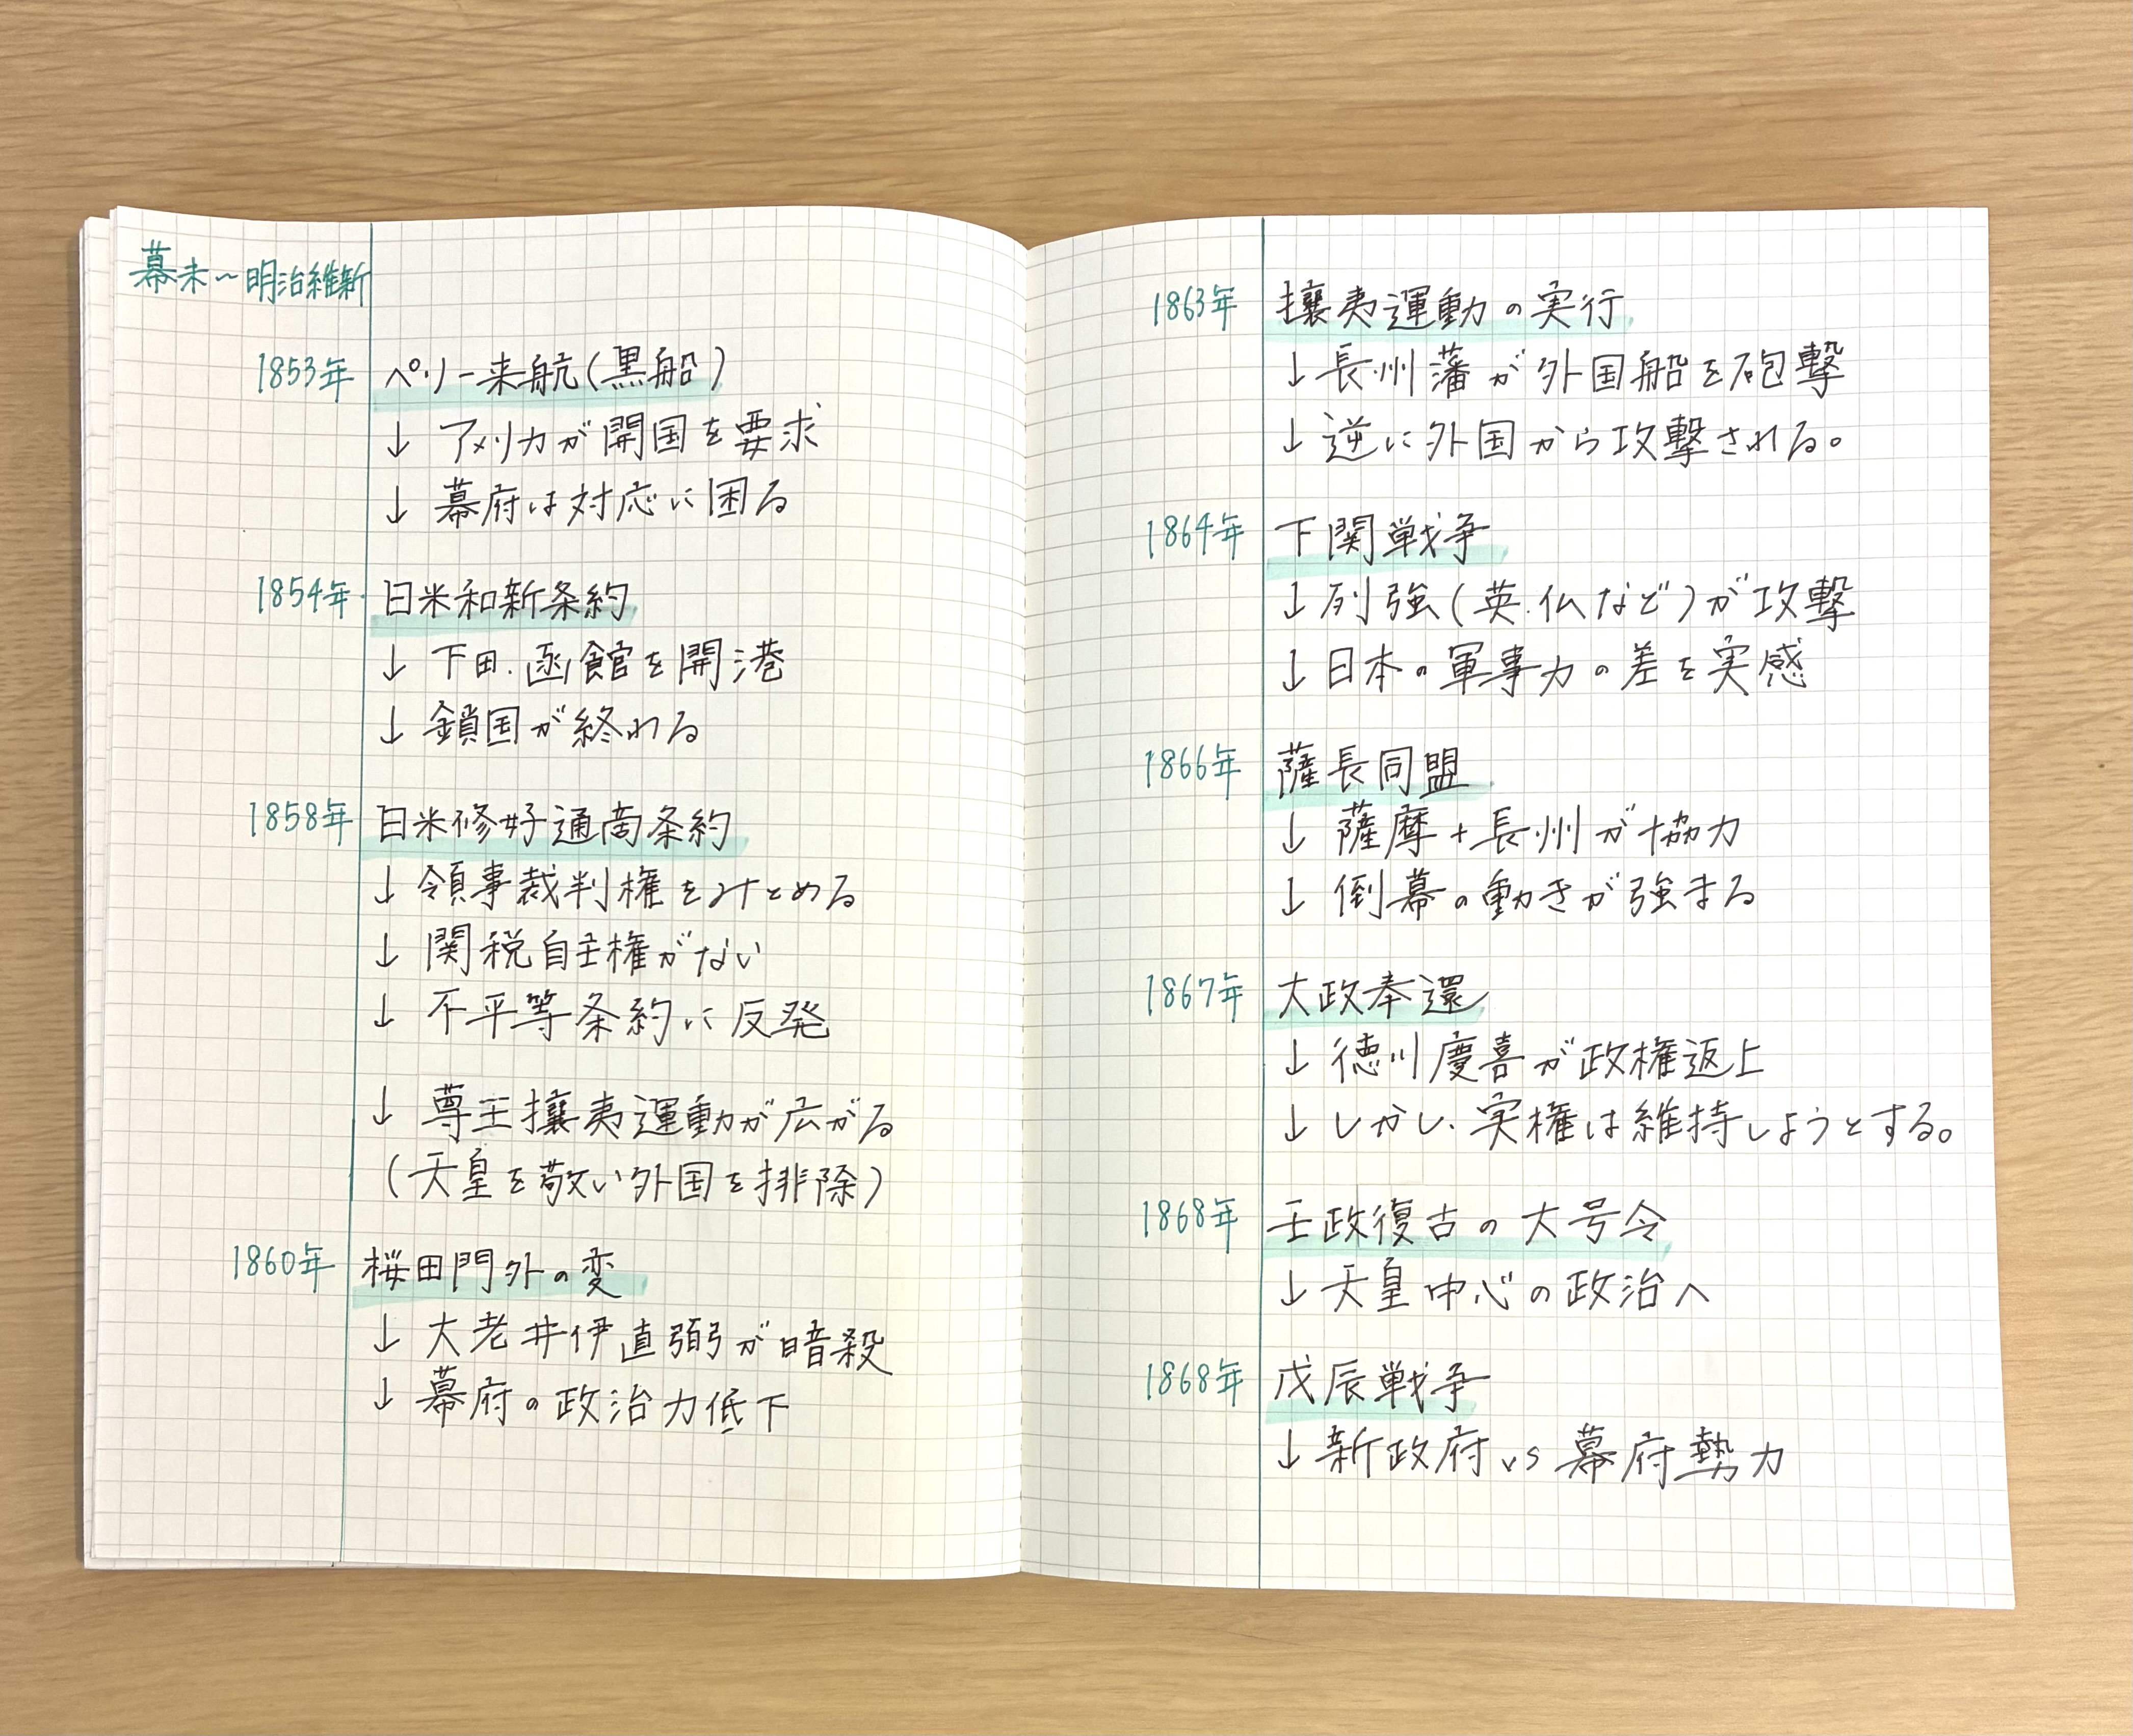 幕末〜明治維新
1853年 ペリー来航(黒船)
↓ アメリカが開国を要求
↓ 幕府は対応に困る
1854年 日米和新条約
↓ 下田.函館を開港
↓ 鎖国が終れる
1858年 日米修好通商条約
↓ 領事裁判権をみとめる
↓ 関税自主権がない
↓ 不平等条約に反発
↓ 尊王攘夷運動が広がる
(天皇を敬い外国を排除)
1860年 桜田門外の変
↓ 大老井伊直弼が暗殺
↓ 幕府の政治力低下
1863年 攘夷運動の実行
↓ 長州藩が外国船を砲撃
↓ 逆に外国から攻撃される。
1864年 下関戦争
↓ 列強(英.仏など)が攻撃
↓ 日本の軍事力の差を実感
1866年 薩長同盟
↓ 薩摩+長州が協力
↓ 倒幕の動きが強まる
1867年 大政奉還
↓ 徳川慶喜が政権返上
↓ しかし、実権は維持しようとする。
1868年 王政復古の大号令
↓ 天皇中心の政治へ
1868年 戊辰戦争
↓ 新政府vs幕府勢力